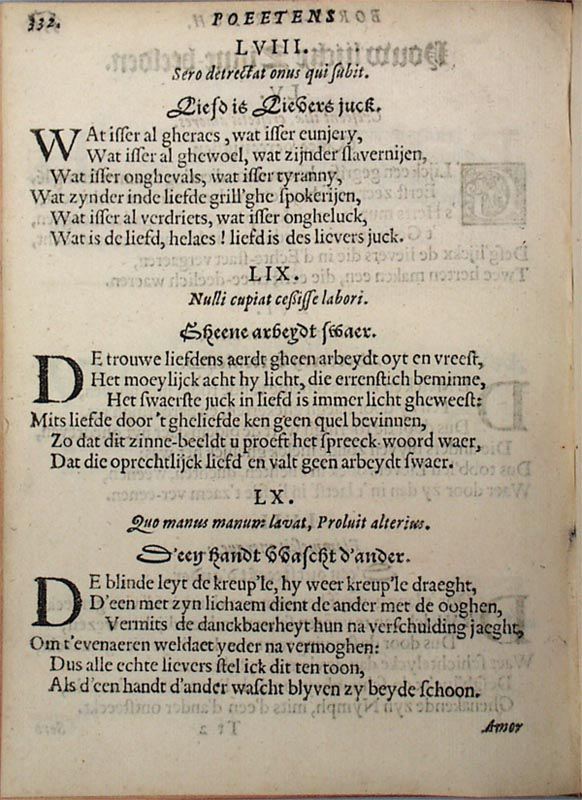 332.
POEETENS
LVIII.
Sero detrectat onus qui subit.
Liefd is Lievers juck.
WAt isser al gheraes, wat isser eunjery,
Wat isser al ghewoel, wat zijnder slavernijen,
Wat isser onghevals, wat isser tyranny,
Wat zynder inde liefde grill'ghe spokerijen,
Wat isser al verdriets, wat isser ongheluck,
Wat is de liefd, helaes! liefd is des lievers juck.
LIX.
Nulli cupiat cessisse labori.
Gheene arbeydt swaer.
DE trouwe liefdens aerdt gheen arbeydt oyt en vreest,
Het moeylijck acht hy licht, die errenstich beminne,
Het swaerste juck in liefd is immer licht gheweest:
Mits liefde door 't gheliefde ken geen quel bevinnen,
Zo dat dit zinne-beeldt u proeft het spreeck-woord waer,
Dat die oprechtlijck liefd' en valt geen arbeydt swaer.
LX.
Quo manus manum lavat, Proluit alterius.
D'een handt VVascht d'ander.
DE blinde leyt de kreup'le, hy weer kreup'le draeght,
D'een met zyn lichaem dient de ander met de ooghen,
Vermits de danckbaerheyt hun na verschulding jaeght,
Om t'evenaeren weldaet yeder na vermoghen:
Dus alle echte lievers stel ick dit ten toon,
Als d'een handt d'ander wascht blyven zy beyde schoon.
Amor